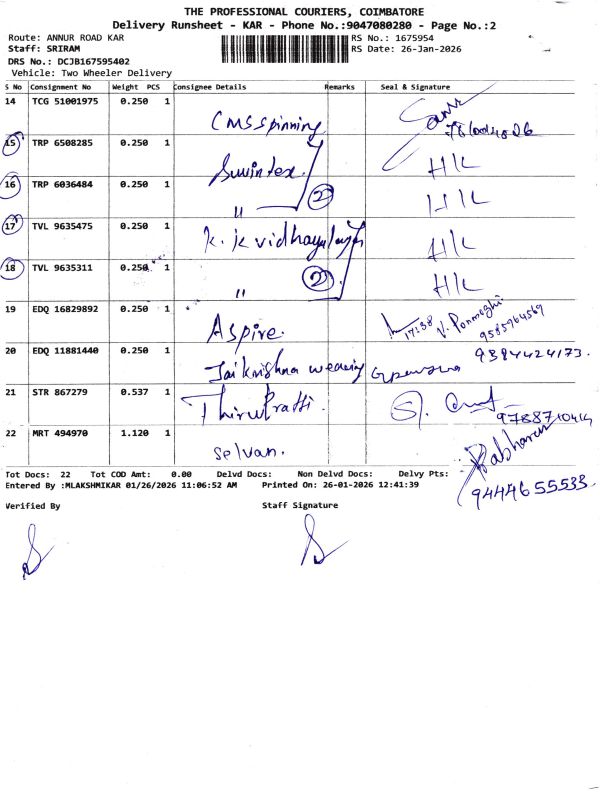 THE PROFESSIONAL COURIERS, COIMBATORE
Delivery Runsheet - KAR - Phone No.:9047080280 - Page No.:2
Route: ANNUR ROAD KAR RS No.: 1675954
Staff: SRIRAM RS Date: 26-Jan-2026
DRS No.: DCJB167595402
Vehicle: Two Wheeler Delivery
S No Consignment No Weight PCS Consignee Details Remarks Seal & Signature
14 TCG 51001975 0.250 1 CMS spinning
15 TRP 6508285 0.250 1 H/L
16 TRP 6036484 0.250 1 " 2 H/L
17 TVL 9635475 0.250 1 K.K vidhayalaya H/L
18 TVL 9635311 0.250 1 " 2 H/L
19 EDQ 16829892 0.250 1 Aspire. 17:38 V. Ponmozhi
9585964569
20 EDQ 11881440 0.250 1 Jai krishna weaving 9384424173.
21 STR 867279 0.537 1
22 MRT 494970 1.120 1 Selvan.
9444655533
Tot Docs: 22 Tot COD Amt: 0.00 Delvd Docs: Non Delvd Docs: Delvy Pts:
Entered By :MLAKSHMIKAR 01/26/2026 11:06:52 AM Printed On: 26-01-2026 12:41:39
Verified By Staff Signature